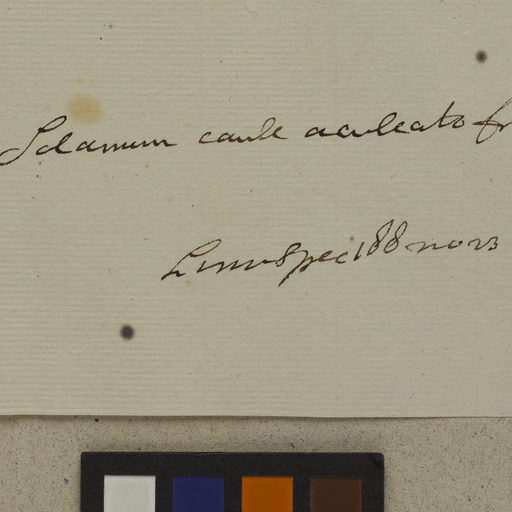 Solanum caule aculeato fr
Linn Spec 188 no 23